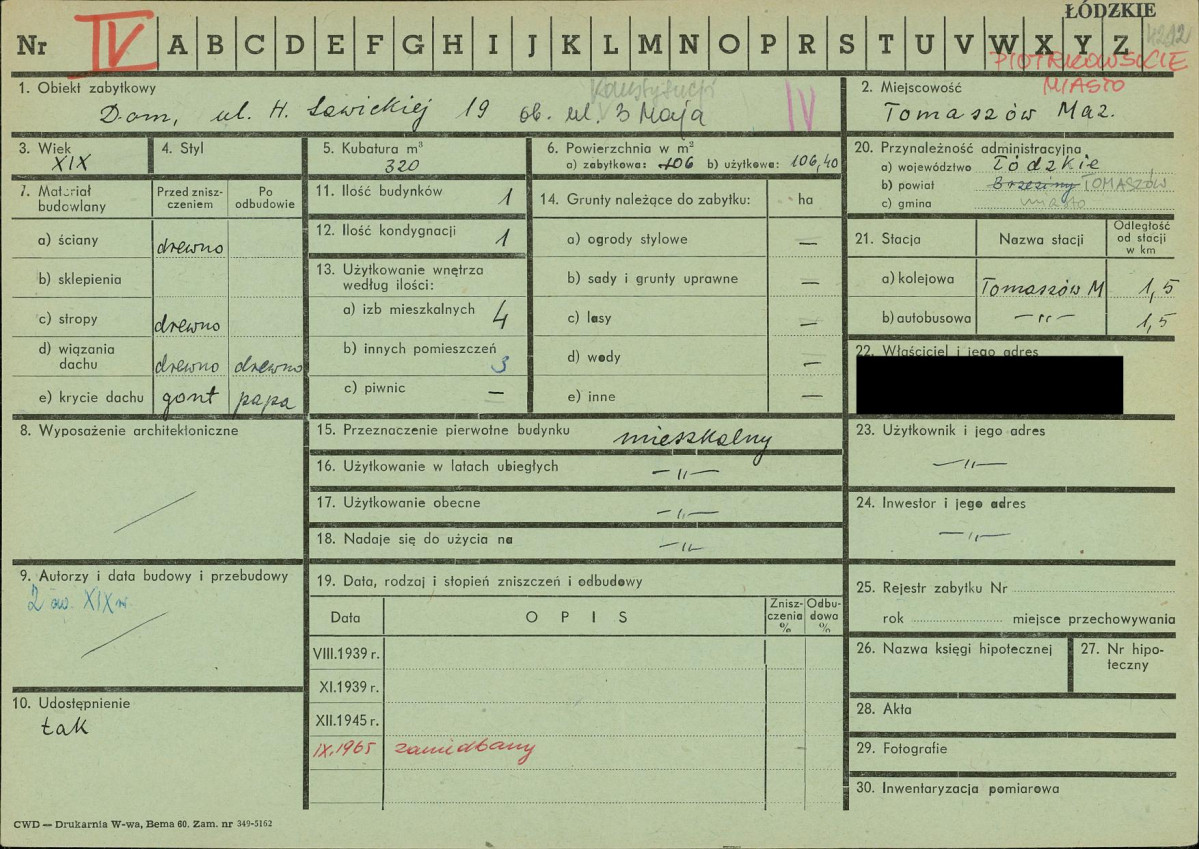 ŁÓDZKIE
Nr IV A B C D E F G H I J K L M N O P R S T U V W X Y Z 4212
PIOTRKOWSKIE
MIASTO
1. Obiekt zabytkowy
Konstytucji
Dom, ul. H. Sawickiej 19 ob. ul. 3 Maja IV
2. Miejscowość
Tomaszów Maz.
3. Wiek
XIX
4. Styl
5. Kubatura m³
320
6. Powierzchnia w m²
a) zabytkowa: 106 b) użytkowa: 106,40
20. Przynależność administracyjna
a) województwo Łódzkie
b) powiat Brzeziny TOMASZÓW
c) gmina miasto
7. Materiał budowlany
Przed znisz-
czeniem
Po
odbudowie
a) ściany drewno
b) sklepienia
c) stropy drewno
d) wiązania
dachu drewno drewno
e) krycie dachu gont papa
11. Ilość budynków 1
12. Ilość kondygnacji 1
13. Użytkowanie wnętrza
według ilości:
a) izb mieszkalnych 4
b) innych pomieszczeń 3
c) piwnic —
14. Grunty należące do zabytku: ha
a) ogrody stylowe —
b) sady i grunty uprawne —
c) lasy —
d) wody —
e) inne —
21. Stacja Nazwa stacji
Odległość
od stacji
w km
a) kolejowa Tomaszów M 1,5
b) autobusowa —„— 1,5
22. Właściciel i jego adres
8. Wyposażenie architektoniczne
15. Przeznaczenie pierwotne budynku mieszkalny
16. Użytkowanie w latach ubiegłych —„—
17. Użytkowanie obecne —„—
18. Nadaje się do użycia na —„—
23. Użytkownik i jego adres
—„—
24. Inwestor i jego adres
—„—
9. Autorzy i data budowy i przebudowy
2 ćw. XIX w.
10. Udostępnienie
tak
19. Data, rodzaj i stopień zniszczeń i odbudowy
Data OPIS
Znisz-
czenia
%
Odbu-
dowa
%
VIII.1939 r.
XI.1939 r.
XII.1945 r.
IX.1965 zaniedbany –
25. Rejestr zabytku Nr
rok miejsce przechowywania
26. Nazwa księgi hipotecznej
27. Nr hipo-
teczny
28. Akta
29. Fotografie
30. Inwentaryzacja pomiarowa
CWD — Drukarnia W-wa, Bema 60. Zam. nr 349-5162